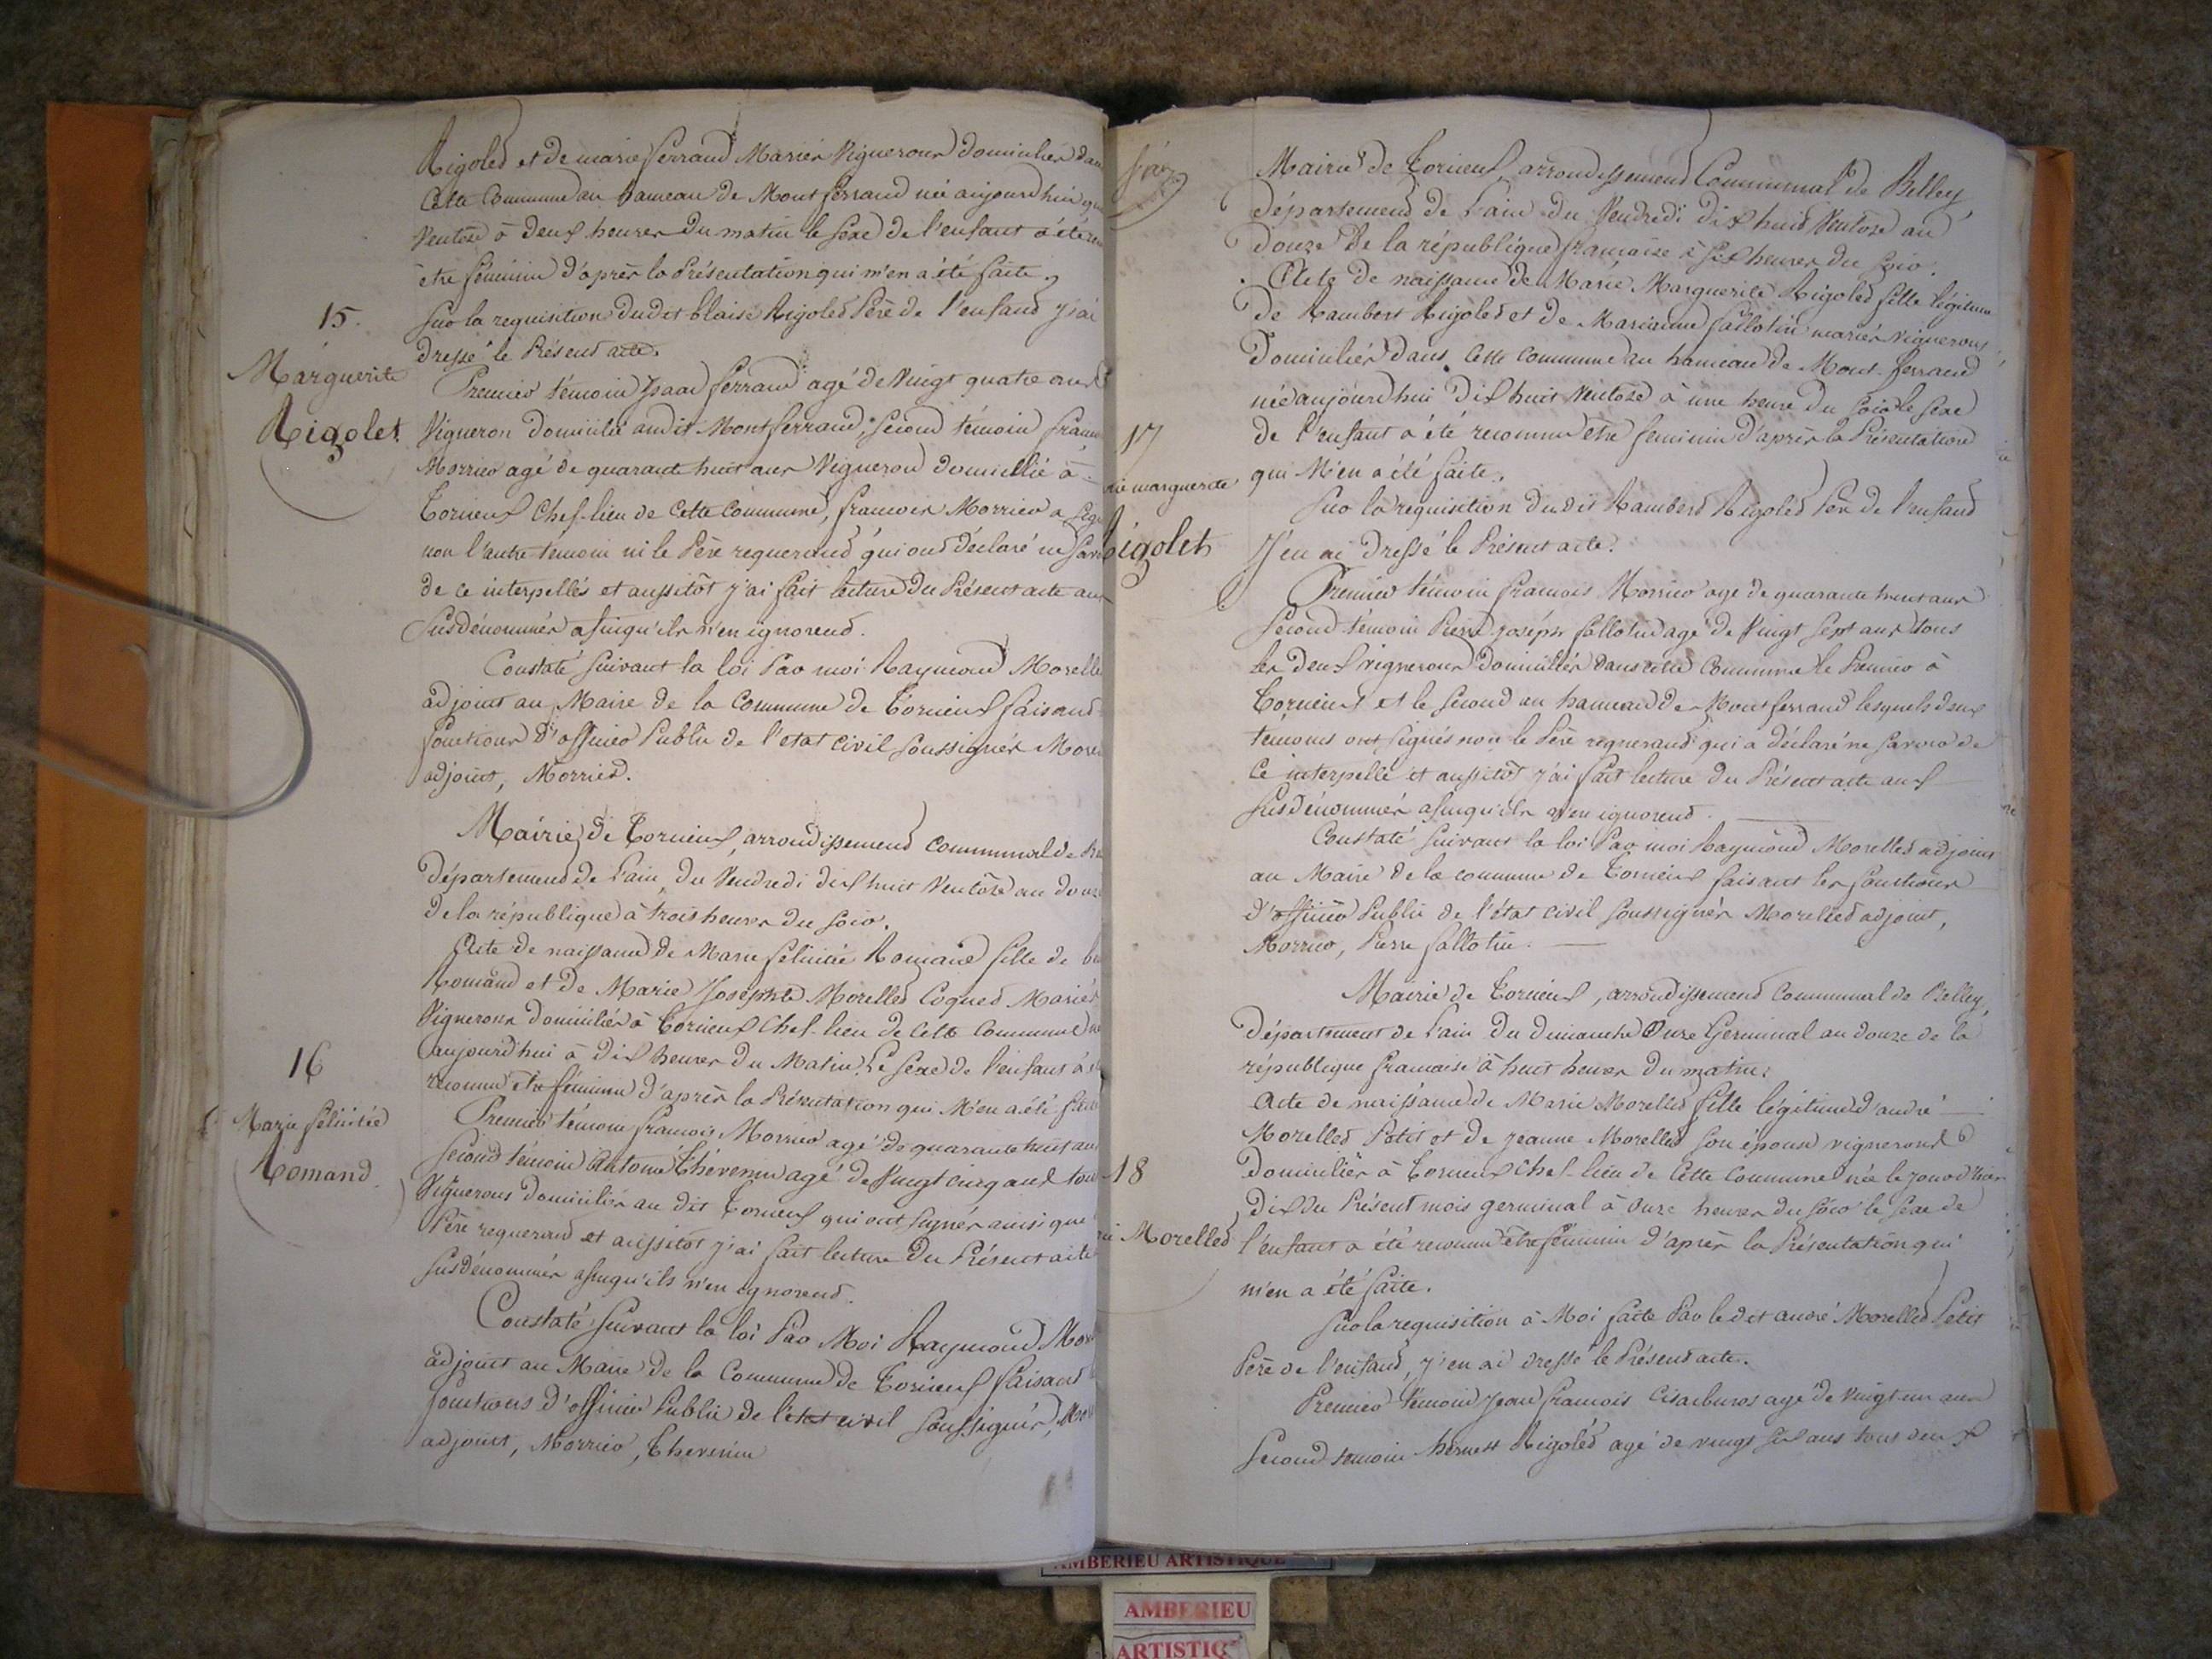 Rigoled et de marie ferrand Mariés Vignerons domiciliés dans
Cette Commune au hameau de Montferrand née aujourd'hui
Ventose à deux heures du matin le sexe de l'enfant a été
être féminin d'après la Présentation qui m'en a été faite,
15.
Sur la requisition dudit blaise Rigoled Père de l'enfand j'ai
dressé le Présend acte.
Marguerite
Rigolet
Premier témoin Isaac ferrand agé de Vingt quatre ans
Vigneron domicilié audit Montferrand; Second témoin
Morrier agé de quarante huit ans Vigneron domicilié à
Torcieux Chef-lieu de Cette Commune, francois Morrier a
non l'autre témoin ni le Père requerand qui ond déclaré ne
de ce interpellés et aussitôt j'ai fait lecture du Présent acte aux
Susdénommés afinqu'ils n'en ignorend.
Constaté Suivant la loi Par moi Raymond
adjoint au Maire de la Commune de Torcieux faisand
fonctions d'officier Public de l'état civil Soussignés
adjoint, Morrier.
Mairie de Torcieux, arrondissemend communal de
département de l'ain, du Vendredi dix huit Ventôse an douze
de la république à trois heures du Soir.
Acte de naissance de Marie felicitée Romand fille de
Romand et de Marie Josephte Morelled Coqued Mariés
Vignerons domiciliés à Torcieux Chef-lieu de Cette Commune
aujourd'hui à dix heures du Matin. Le Sexe de l'enfant a
reconnu être féminin d'après la Présentation qui M'en a été
16
Marie félicitée
Romand.
Premier témoin francois Morrier agé de quarante huit ans
Second témoin Antoine Thévenin agé de Vingt cinq ans
Vignerons domiciliés au dit Torcieux qui ont Signés ainsi que
Père requerand et aussitôt j'ai fait lecture du Présent acte
Susdénommés afinqu'ils n'en ignorend.
Constaté Suivant la loi Par Moi Raymond
adjoint au Maire de la Commune de Torcieux faisand
fonctions d'officier Public de l'état civil Soussignés,
adjoint, Morrier, Thevenin
Mairie de Torcieux, arrondissemend Communal de Belley,
département de l'ain du Vendredi dix huit Ventose an
douze de la république française à six heures du Soir.
Acte de naissance de Marie Marguerite Rigoled fille légitime
de Rambert Rigoled et de Marianne fallotin mariés Vignerons
domiciliés dans Cette Commune au hameau de Mont-ferrand
née aujourd'hui dix huit Ventose à une heure du Soir le Sexe
de l'enfant a été reconnu être feminin d'après la Présentation
qui M'en a été faite.
17
marguerite
Rigolet
Sur la requisition dudit Ramberd Rigoled Père de l'enfand
J'en ai dressé le Présent acte.
Premier témoin francois Morrier agé de quarante huit ans
Second témoin Pierre joseph fallotin agé de Vingt Sept ans tous
les deux vignerons domiciliés dans cette Commune le Premier à
Torcieux et le Second au hameau de Montferrand lesquels deux
témoins ont Signés non le Père requerand qui a déclaré ne Savoir de
Ce interpellé et aussitôt j'ai fait lecture du Présent acte aux
Susdénommés afinqu'ils n'en ignorend.
Constaté Suivant la loi Par moi Raymond Morelled adjoint
au Maire de la commune de Torcieux faisant les fonctions
d'officier Public de l'état Civil Soussignés Morelled adjoint,
Morrier, Pierre fallotin.
Mairie de Torcieux, arrondissemend Communal de Belley,
département de l'ain du dimanche Onze Germinal an douze de la
république francaise à huit heures du matin.
Acte de naissance de Marie Morelled fille légitime d'andré
Morelled Petit et de jeanne Morelled Son épouse vignerons
18
domiciliés à Torcieux Chef-lieu de Cette Commune née le jour d'hier
dix du Présent mois germinal à Onze heures du Soir le Sexe de
Morelled
l'enfant a été reconnu être féminin d'après la Présentation qui
m'en a été faite.
Sur la requisition à Moi faite Par ledit andré Morelled Petit
Père de l'enfand, j'en ai dressé le Présend acte.
Premier témoin jean francois agé de vingt un ans
Second temoin Rigoled agé de vingt six ans tous deux
AMBERIEU ARTISTIQUE
AMBERIEU
ARTISTIQ